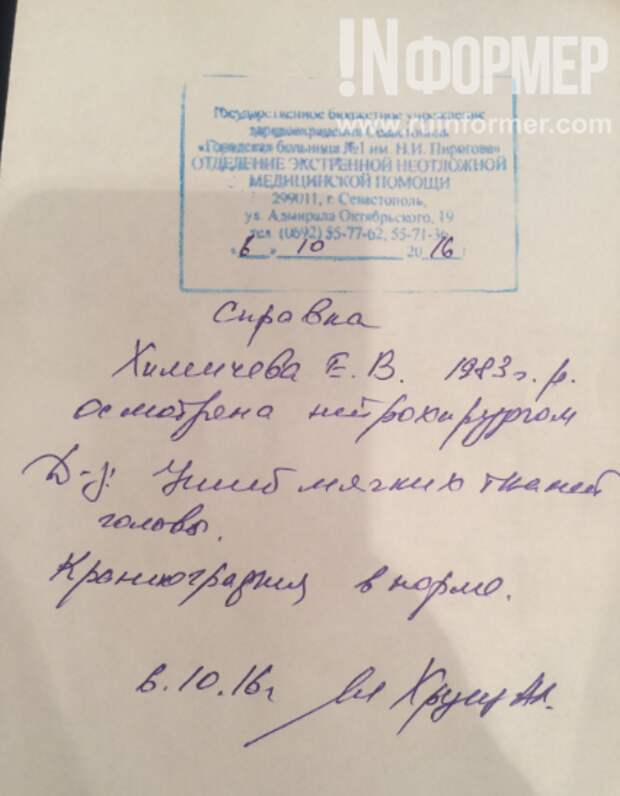 !NФОРМЕР
www.ruinformer.com
Государственное бюджетное учреждение
здравоохранения Севастополя
«Городская больница №1 им. Н.И. Пирогова»
ОТДЕЛЕНИЕ ЭКСТРЕННОЙ НЕОТЛОЖНОЙ
МЕДИЦИНСКОЙ ПОМОЩИ
299011, г. Севастополь,
ул. Адмирала Октябрьского, 19
тел. (0692) 55-77-62, 55-71-36
«6» 10 2016г
Справка
Химичева Е. В. 1983г.р.
осмотрена нейрохирургом
Д-з: Ушиб мягких тканей
головы.
Краниография в норме.
6.10.16г